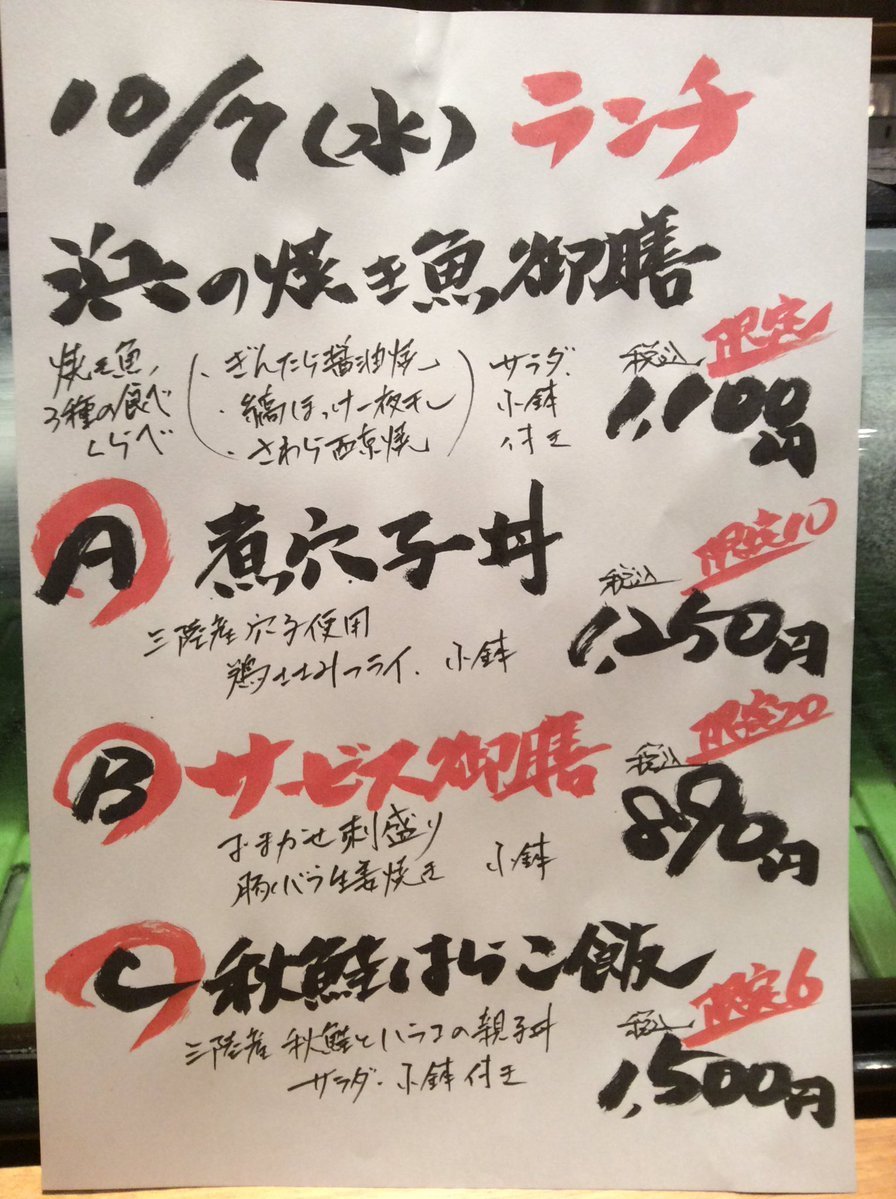 10/7(水) ランチ
浜の焼き魚御膳
焼き魚、
3種の食べ
くらべ
・ぎんだら醤油焼
・縞ほっけ一夜干し
・さわら西京焼
サラダ・
小鉢
付き
限定
税込
1,100円
A 煮穴子丼
三陸産穴子使用
鶏ささみフライ、小鉢
限定10
税込
1,250円
B サービス御膳
おまかせ刺盛り
豚バラ生姜焼き 小鉢
限定20
税込
890円
C 秋鮭はらこ飯
三陸産 秋鮭とイクラの親子丼
サラダ・小鉢付き
限定6
税込
1,500円